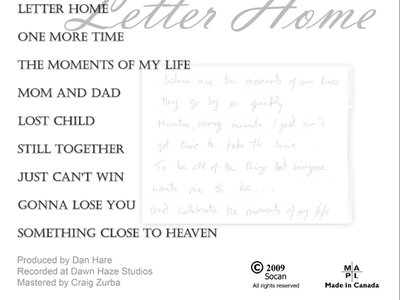 Letter Home
LETTER HOME
ONE MORE TIME
THE MOMENTS OF MY LIFE
MOM AND DAD
LOST CHILD
STILL TOGETHER
JUST CAN'T WIN
GONNA LOSE YOU
SOMETHING CLOSE TO HEAVEN
Where are the moments of our lives
they go by so quickly
Minutes, every minute I just can't
get time to take the time
To be all of the things that everyone
wants me to be...
And celebrate the moments of my life
Produced by Dan Hare
Recorded at Dawn Haze Studios
Mastered by Craig Zurba
© 2009
Socan
All rights reserved
M A
P L
Made in Canada